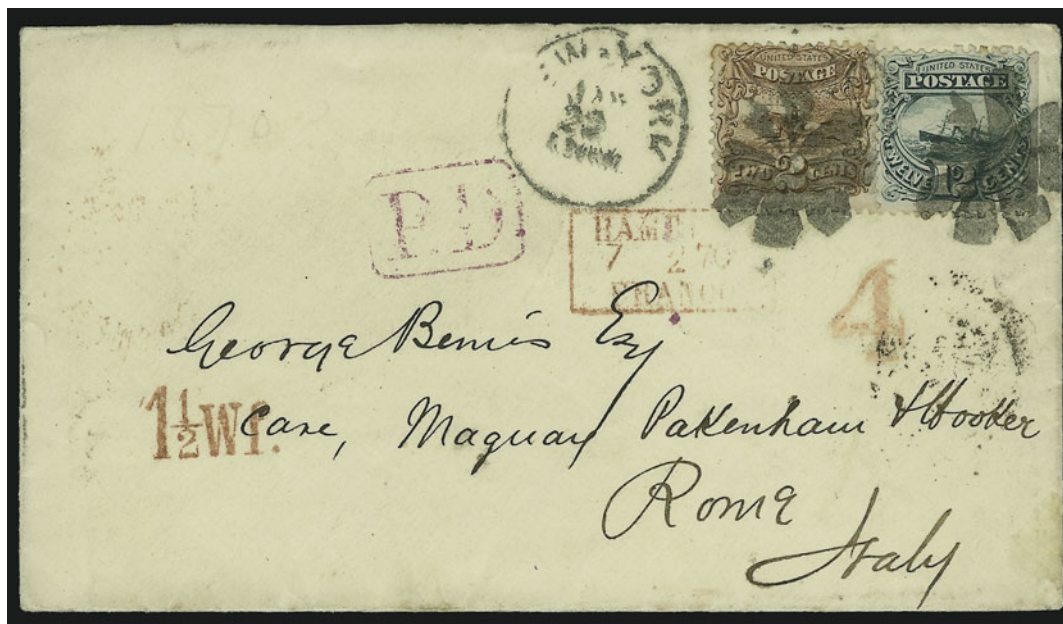 NEW YORK
JAN
UNITED STATES
POSTAGE
TWO 2 CENTS
UNITED STATES
POSTAGE
TWELVE 12 CENTS
P.D
7 2 70
FRANCO
4
George Bemis Esq
1½ Wf.
Care, Maquay Pakenham & Hooker
Rome
Italy